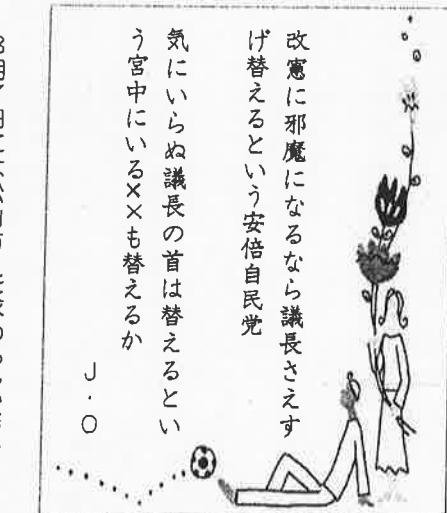 改憲に邪魔になるなら議長さえす
げ替えるという安倍自民党
気にいらぬ議長の首は替えるとい
う宮中にいる××も替えるか
J・O